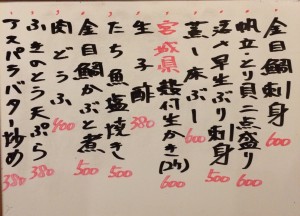 金目鯛刺身 600
帆立とり貝二点盛り 600
活〆早生ぶり刺身 500
蒸し床ぶし 600
宮城県 殻付生かき(2ケ) 600
生子酢 380
たち魚塩焼き 500
金目鯛かぶと煮 500
肉どうふ 400
ふきのとう天ぷら 380
アスパラバター炒め 380